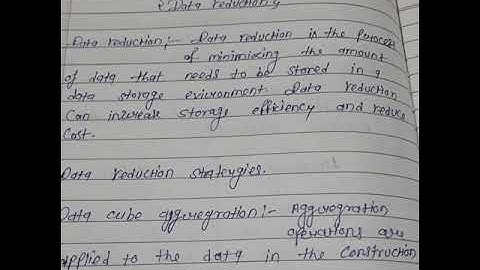 Data reduction
Data reduction :- Data reduction is the process
of minimizing the amount
of data that needs to be stored in a
data storage evironment Data reduction
Can increak storage efficiency and reduce
Cost.
Data reduction strateygies.
Data cube aggregration :- Aggregration
operations are
applied to the data in the construction